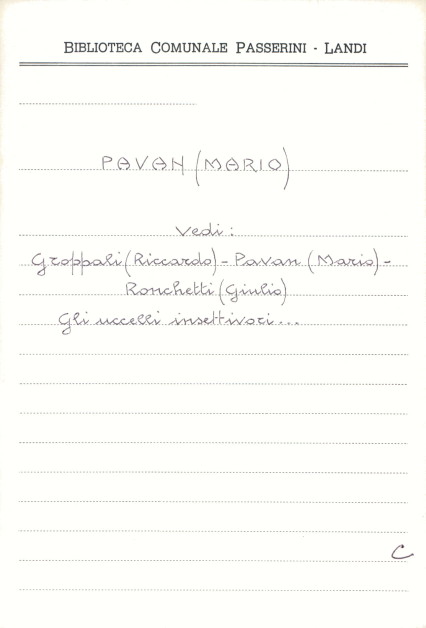 BIBLIOTECA COMUNALE PASSERINI - LANDI
PAVAN (MARIO)
Vedi:
Groppali (Riccardo) - Pavan (Mario) -
Ronchetti (Giulio)
Gli uccelli insettivori...
C